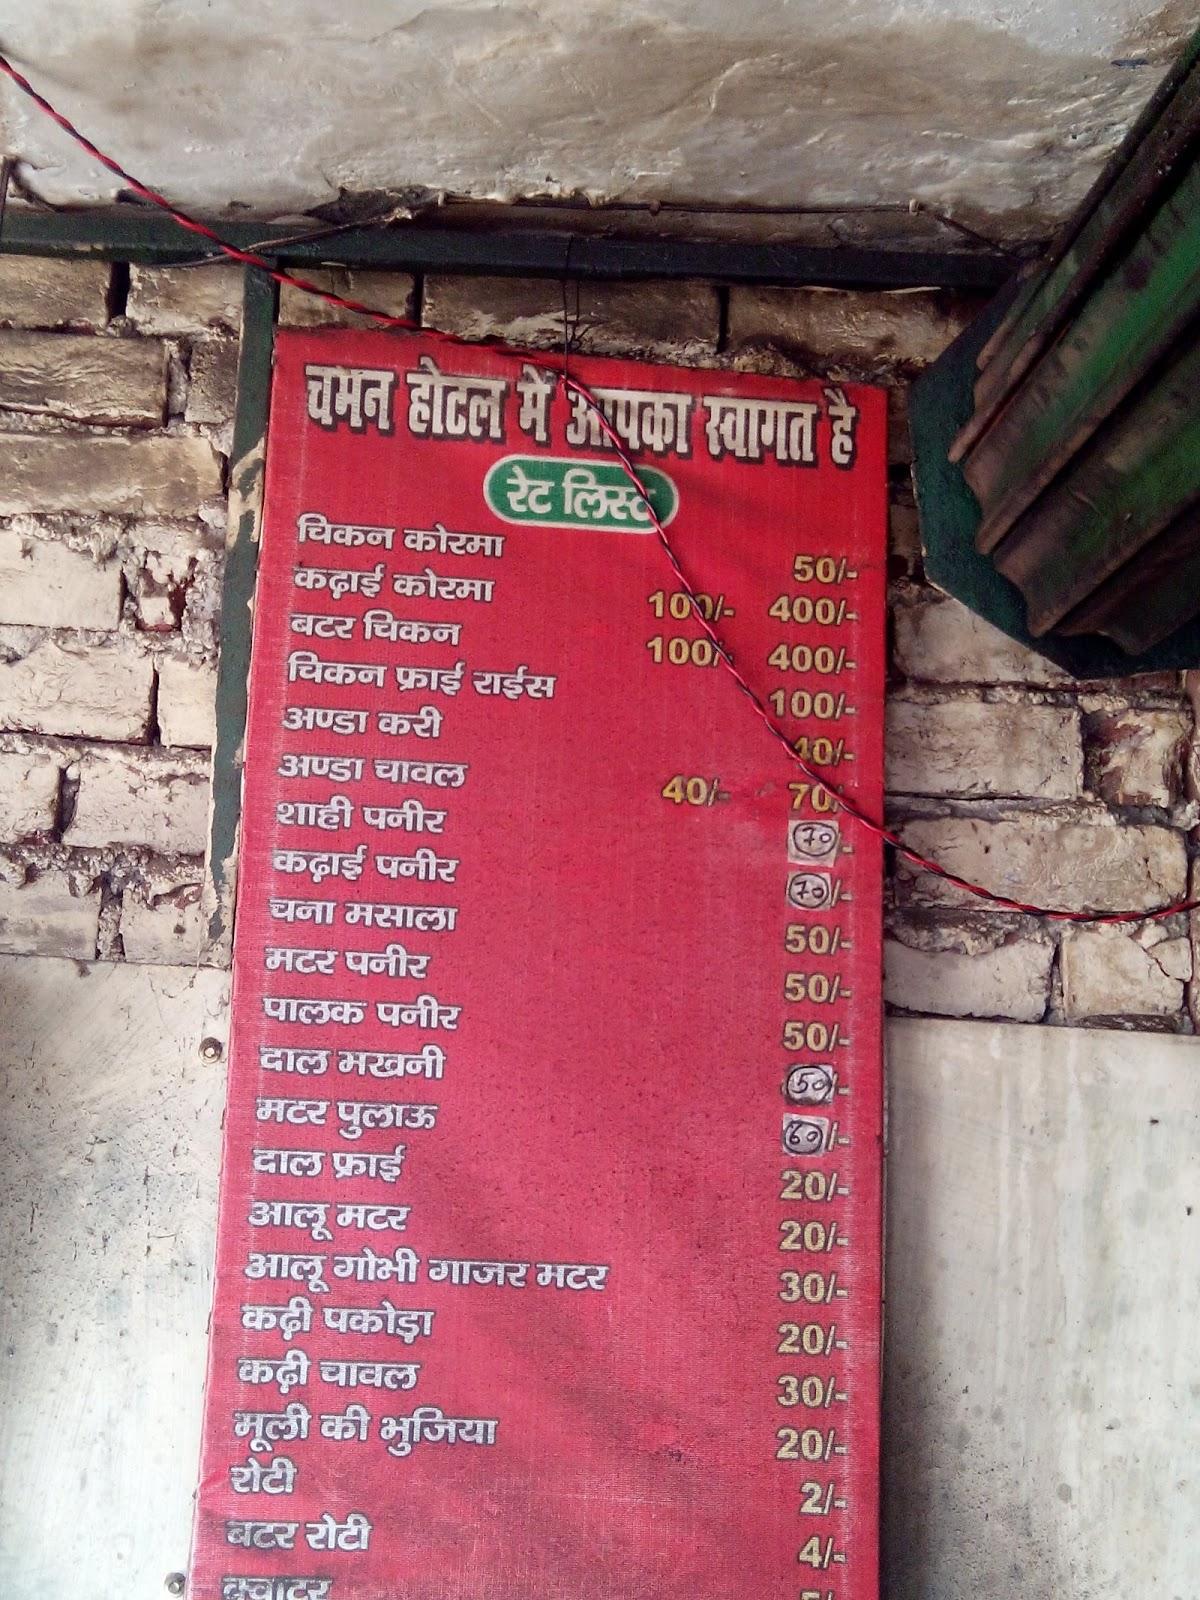 चमन होटल में आपका स्वागत है
रेट लिस्ट
चिकन कोरमा 50/-
कढ़ाई कोरमा 100/- 400/-
बटर चिकन 100/- 400/-
चिकन फ्राई राईस 100/-
अण्डा करी 40/-
अण्डा चावल 40/- 70/-
शाही पनीर 70/-
कढ़ाई पनीर 70/-
चना मसाला 50/-
मटर पनीर 50/-
पालक पनीर 50/-
दाल भखनी 50/-
मटर पुलाऊ 60/-
दाल फ्राई 20/-
आलू मटर 20/-
आलू गोभी गाजर मटर 30/-
कढ़ी पकोड़ा 20/-
कढ़ी चावल 30/-
मूली की भुजिया 20/-
रोटी 2/-
बटर रोटी 4/-